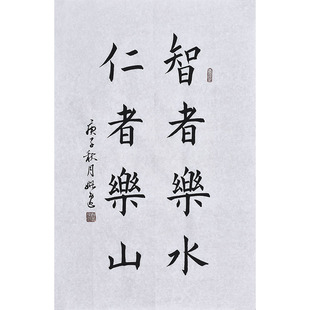 智者樂水
仁者樂山
庚子秋月